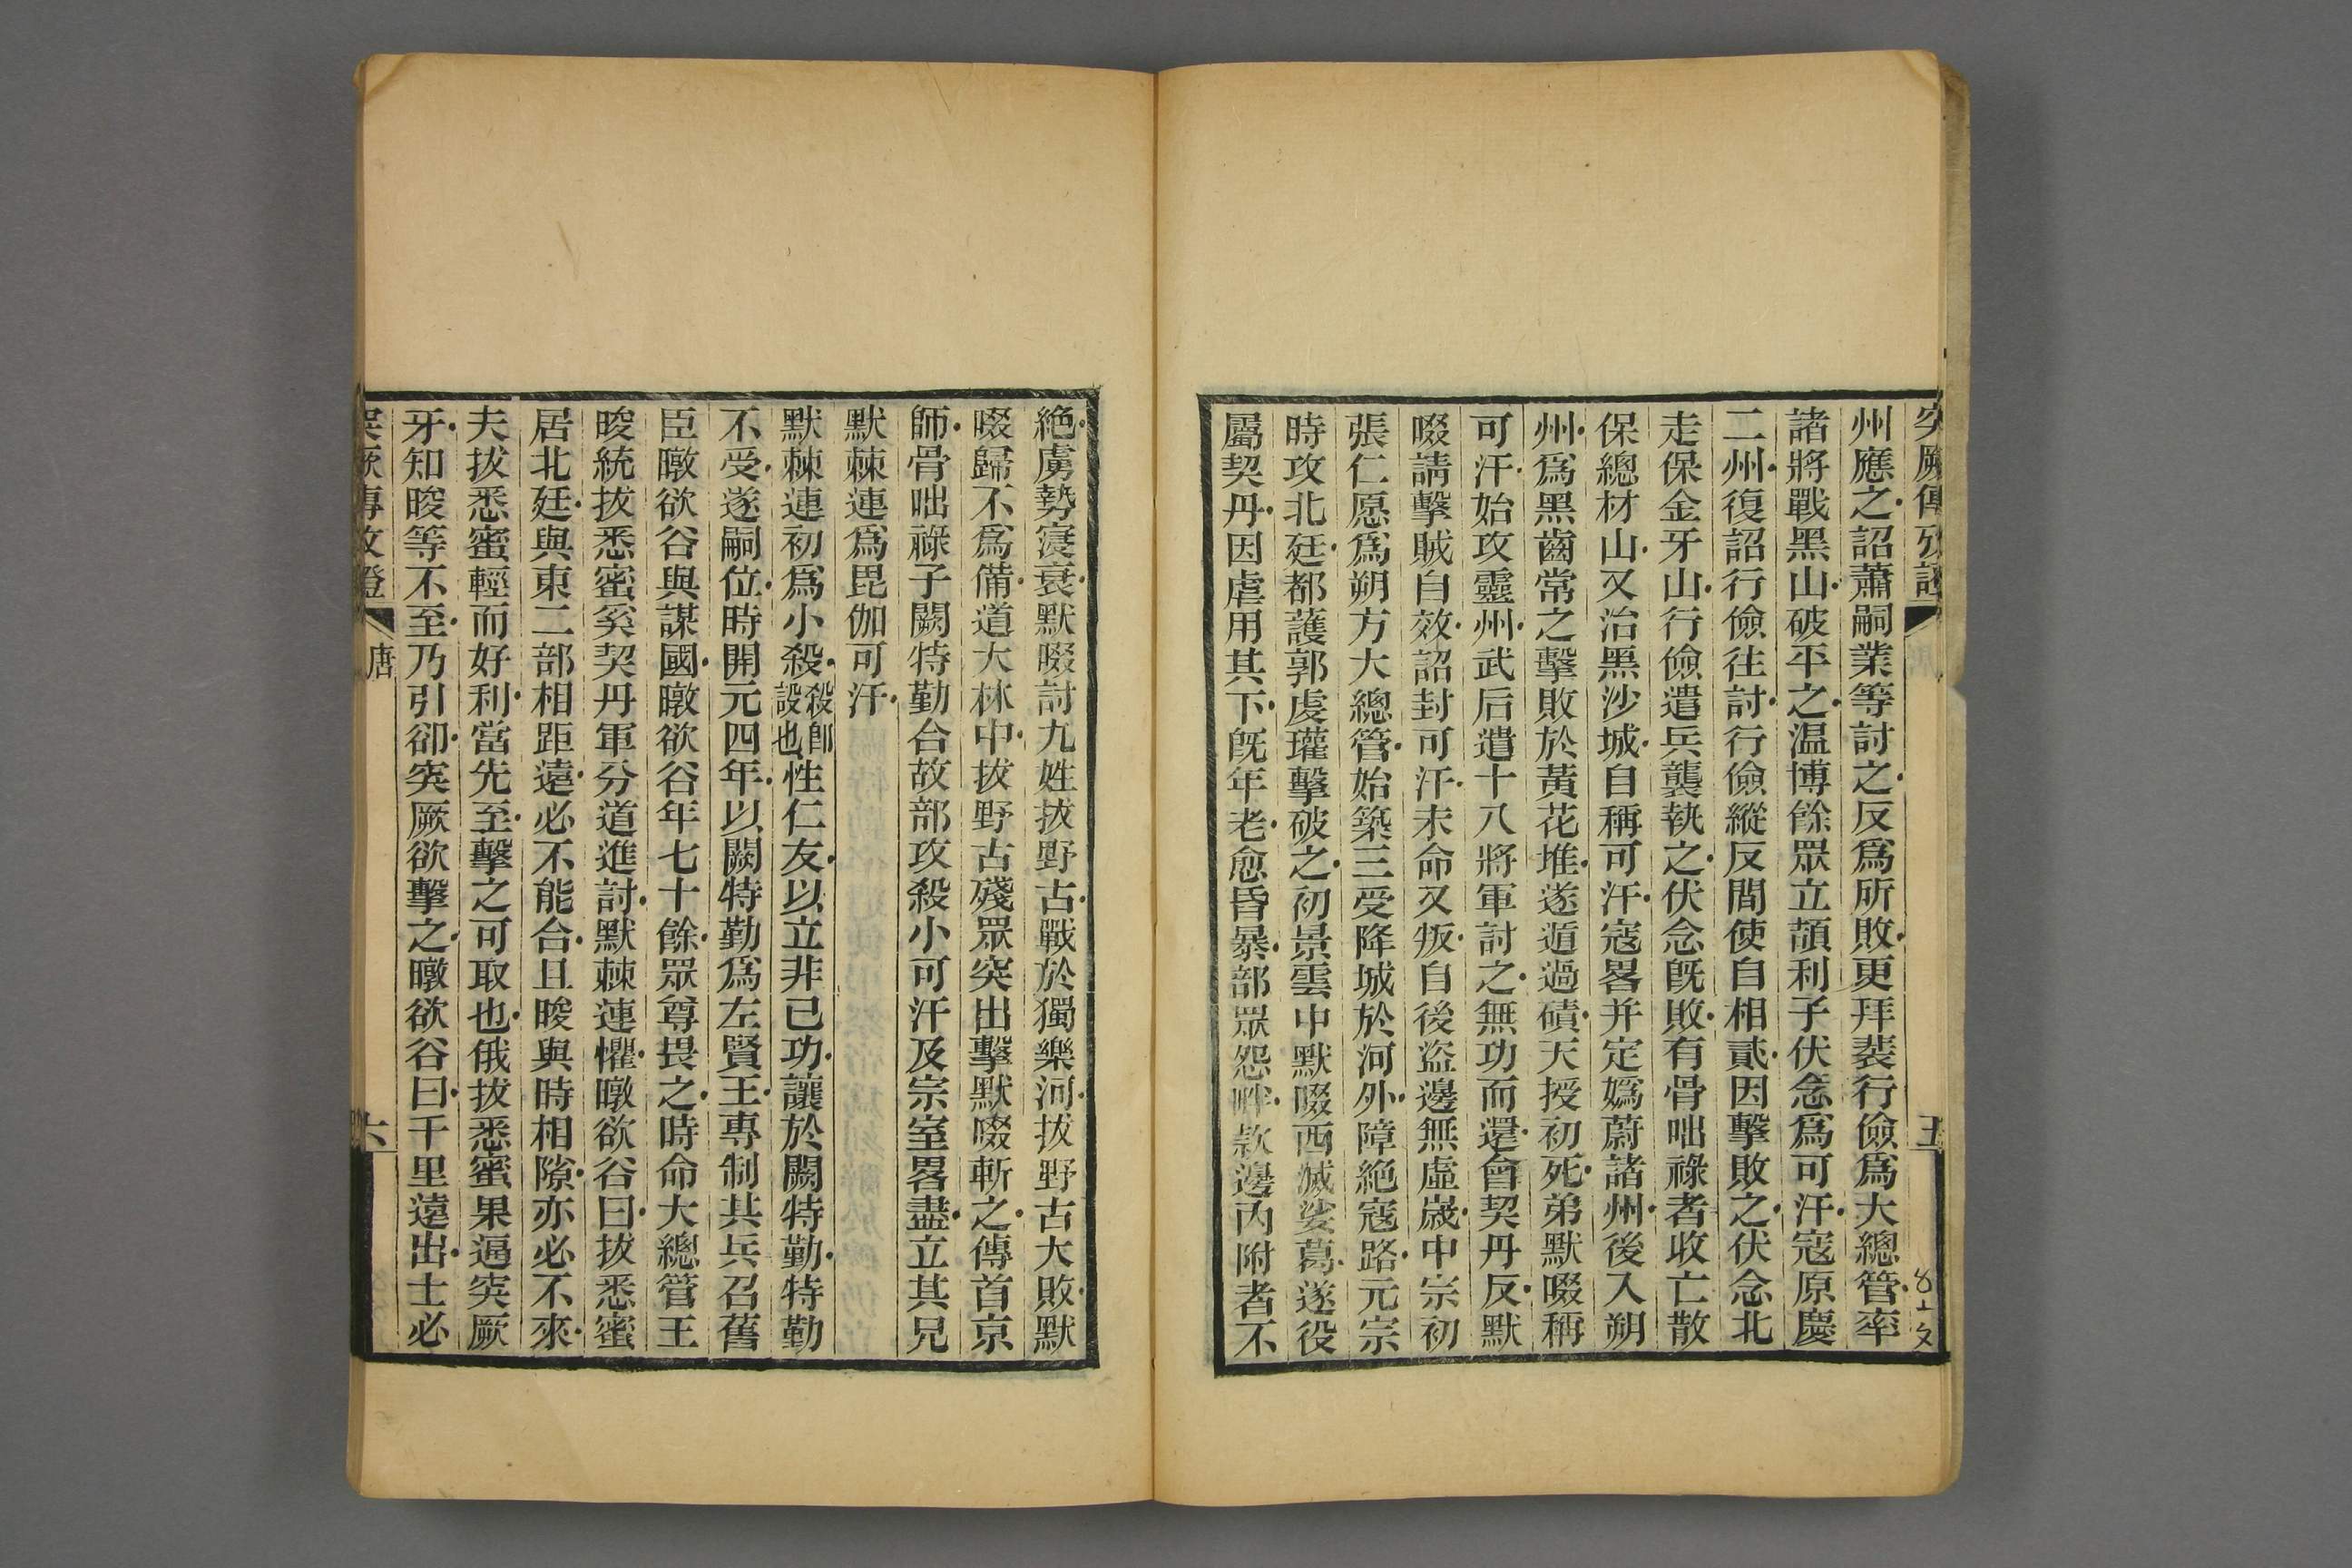 突厥傳攷證
五
州應之詔蕭嗣業等討之反爲所敗更拜裴行儉爲大總管率
諸將戰黑山破平之温博餘眾立頡利子伏念爲可汗寇原慶
二州復詔行儉往討行儉縱反間使自相貳因擊敗之伏念北
走保金牙山行儉遣兵襲執之伏念旣敗有骨咄祿者收亡散
保總材山又治黑沙城自稱可汗寇畧并定嬀蔚諸州後入朔
州爲黑齒常之擊敗於黃花堆遂遁過磧天授初死弟默啜稱
可汗始攻靈州武后遣十八將軍討之無功而還會契丹反默
啜請擊賊自效詔封可汗未命又叛自後盜邊無虛歲中宗初
張仁愿爲朔方大總管始築三受降城於河外障絶寇路元宗
時攻北廷都護郭虔瓘擊破之初景雲中默啜西滅娑葛遂役
屬契丹因虐用其下旣年老愈昏暴部眾怨畔款邊內附者不
絶虜勢寖衰默啜討九姓拔野古戰於獨樂河拔野古大敗默
啜歸不爲備道大林中拔野古殘眾突出擊默啜斬之傳首京
師骨咄祿子闕特勤合故部攻殺小可汗及宗室畧盡立其兄
默棘連爲毘伽可汗
默棘連初爲小殺殺卽設也性仁友以立非已功讓於闕特勤特勤
不受遂嗣位時開元四年以闕特勤爲左賢王專制其兵召舊
臣暾欲谷與謀國暾欲谷年七十餘眾尊畏之時命大總管王
晙統拔悉蜜奚契丹軍分道進討默棘連懼暾欲谷曰拔悉蜜
居北廷與東二部相距遠必不能合且晙與時相隙亦必不來
夫拔悉蜜輕而好利當先至擊之可取也俄拔悉蜜果逼突厥
牙知晙等不至乃引卻突厥欲擊之暾欲谷曰千里遠出士必
突厥傳攷證
唐
六